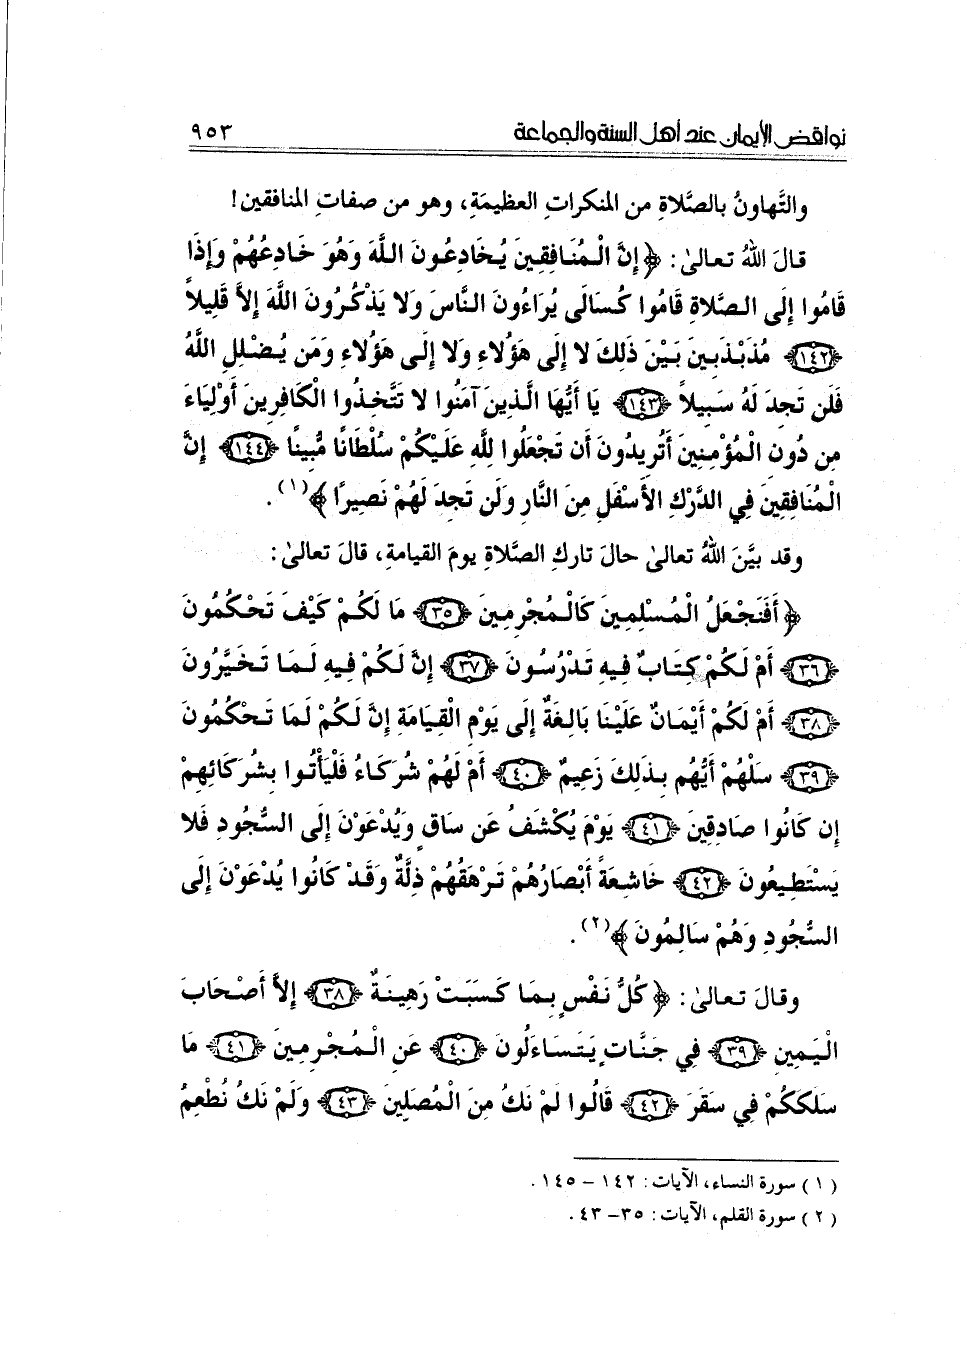 نواقض الإيمان عند أهل السنة والجماعة ٩٥٣
والتَّهاونُ بالصَّلاةِ من المنكراتِ العظيمَةِ، وهو من صفاتِ المنافقين!
قالَ اللهُ تعالىٰ: ﴿ إِنَّ الْمُنَافِقِينَ يُخَادِعُونَ اللَّهَ وَهُوَ خَادِعُهُمْ وَإِذَا
قَامُوا إِلَى الصَّلاةِ قَامُوا كُسَالَى يُرَاءُونَ النَّاسَ وَلا يَذْكُرُونَ اللَّهَ إِلاَّ قَلِيلاً
﴿١٤٢﴾ مُذَبْذَبِينَ بَيْنَ ذَلِكَ لا إِلَى هَؤُلاءِ وَلا إِلَى هَؤُلاءِ وَمَن يُضْلِلِ اللَّهُ
فَلَن تَجِدَ لَهُ سَبِيلاً ﴿١٤٣﴾ يَا أَيُّهَا الَّذِينَ آمَنُوا لا تَتَّخِذُوا الْكَافِرِينَ أَوْلِيَاءَ
مِن دُونِ الْمُؤْمِنِينَ أَتُرِيدُونَ أَن تَجْعَلُوا لِلَّهِ عَلَيْكُمْ سُلْطَانًا مُّبِينًا ﴿١٤٤﴾ إِنَّ
الْمُنَافِقِينَ فِي الدَّرْكِ الأَسْفَلِ مِنَ النَّارِ وَلَن تَجِدَ لَهُمْ نَصِيرًا ﴾(١).
وقد بيَّنَ اللهُ تعالىٰ حالَ تاركِ الصَّلاةِ يومَ القيامةِ، قالَ تعالىٰ:
﴿ أَفَنَجْعَلُ الْمُسْلِمِينَ كَالْمُجْرِمِينَ ﴿٣٥﴾ مَا لَكُمْ كَيْفَ تَحْكُمُونَ
﴿٣٦﴾ أَمْ لَكُمْ كِتَابٌ فِيهِ تَدْرُسُونَ ﴿٣٧﴾ إِنَّ لَكُمْ فِيهِ لَمَا تَخَيَّرُونَ
﴿٣٨﴾ أَمْ لَكُمْ أَيْمَانٌ عَلَيْنَا بَالِغَةٌ إِلَى يَوْمِ الْقِيَامَةِ إِنَّ لَكُمْ لَمَا تَحْكُمُونَ
﴿٣٩﴾ سَلْهُمْ أَيُّهُم بِذَلِكَ زَعِيمٌ ﴿٤٠﴾ أَمْ لَهُمْ شُرَكَاءُ فَلْيَأْتُوا بِشُرَكَائِهِمْ
إِن كَانُوا صَادِقِينَ ﴿٤١﴾ يَوْمَ يُكْشَفُ عَن سَاقٍ وَيُدْعَوْنَ إِلَى السُّجُودِ فَلا
يَسْتَطِيعُونَ ﴿٤٢﴾ خَاشِعَةً أَبْصَارُهُمْ تَرْهَقُهُمْ ذِلَّةٌ وَقَدْ كَانُوا يُدْعَوْنَ إِلَى
السُّجُودِ وَهُمْ سَالِمُونَ ﴾(٢).
وقالَ تعالىٰ: ﴿ كُلُّ نَفْسٍ بِمَا كَسَبَتْ رَهِينَةٌ ﴿٣٨﴾ إِلاَّ أَصْحَابَ
الْيَمِينِ ﴿٣٩﴾ فِي جَنَّاتٍ يَتَسَاءَلُونَ ﴿٤٠﴾ عَنِ الْمُجْرِمِينَ ﴿٤١﴾ مَا
سَلَكَكُمْ فِي سَقَرَ ﴿٤٢﴾ قَالُوا لَمْ نَكُ مِنَ الْمُصَلِّينَ ﴿٤٣﴾ وَلَمْ نَكُ نُطْعِمُ
(١) سورة النساء، الآيات: ١٤٢ – ١٤٥.
(٢) سورة القلم، الآيات: ٣٥ – ٤٣.